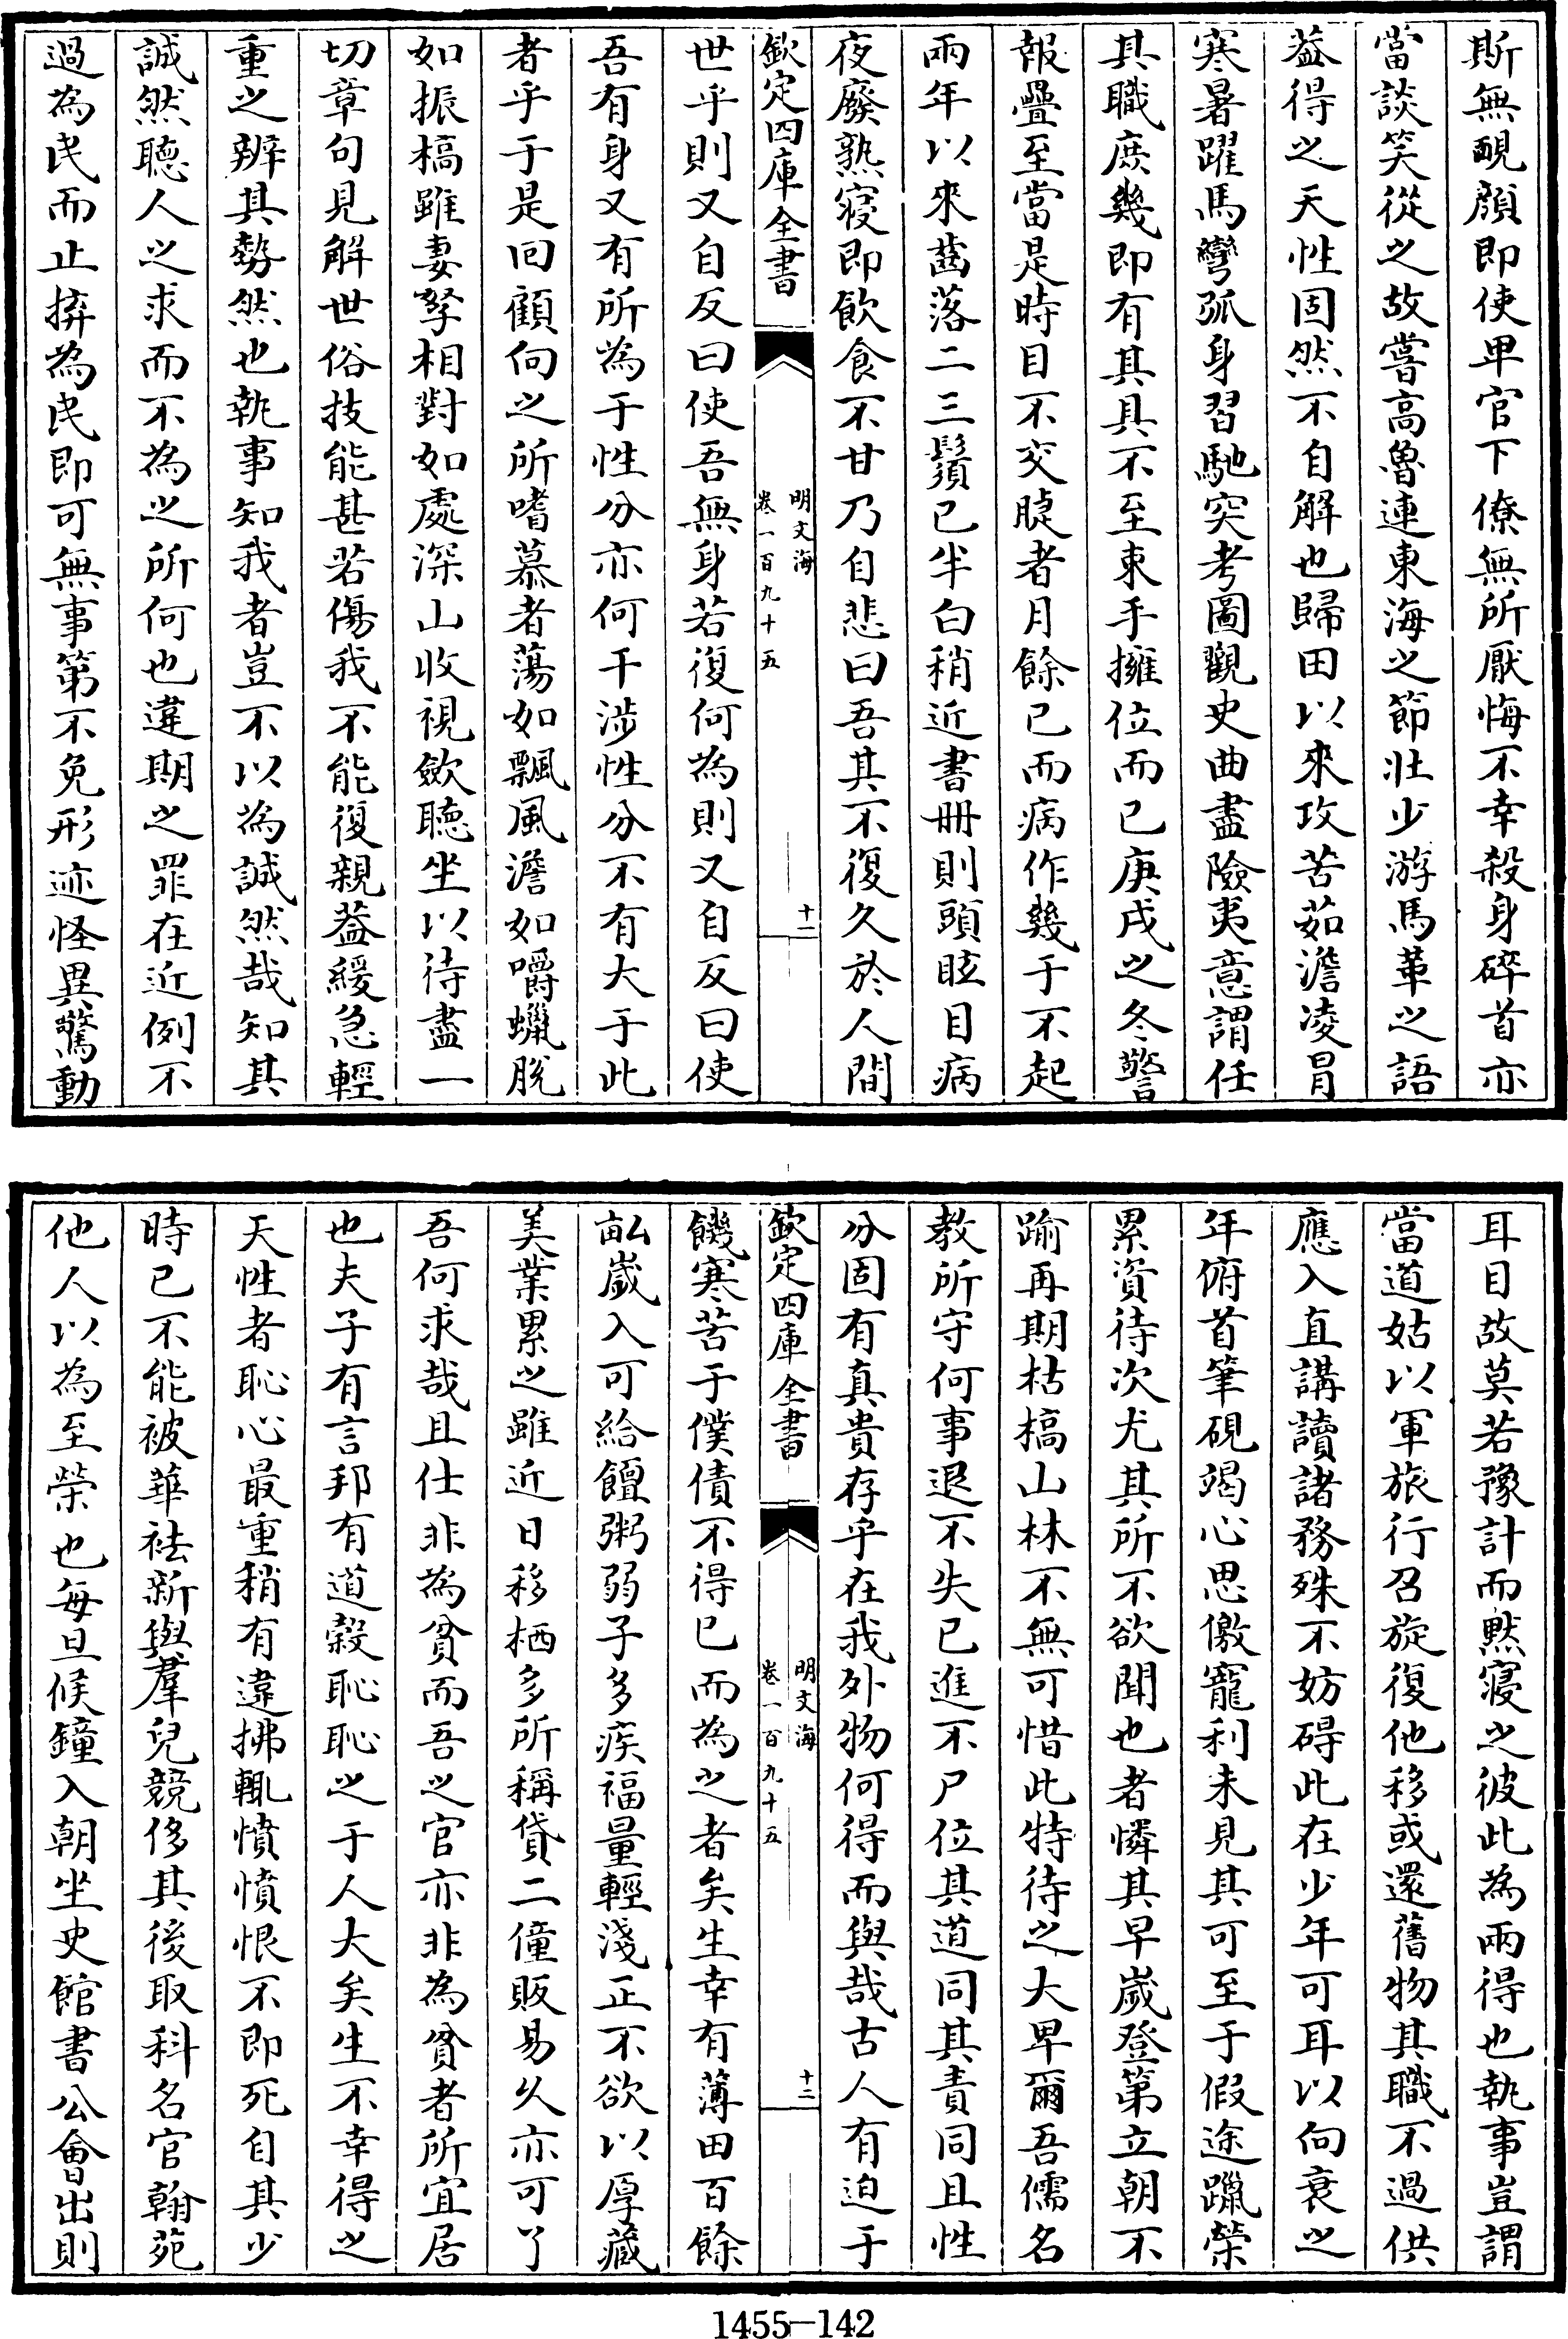 斯無靦顔即使卑官下僚無所厭悔不幸殺身碎首亦
當談笑從之故嘗高魯連東海之節壯少游馬革之語
葢得之天性固然不自解也歸田以來攻苦茹澹凌冒
寒暑躍馬彎弧身習馳突考圖觀史曲盡險夷意謂任
其職庶幾即有其具不至束手擁位而已庚戌之冬警
報疊至當是時目不交睫者月餘已而病作幾于不起
兩年以來齒落二三鬚已半白稍近書冊則頭眩目病
夜廢熟寢即飲食不甘乃自悲曰吾其不復久於人間
欽定四庫全書
明文海
卷一百九十五
十一
世乎則又自反曰使吾無身若復何為則又自反曰使
吾有身又有所為于性分亦何干涉性分不有大于此
者乎于是回顧向之所嗜慕者蕩如飄風澹如嚼蠟脫
如振槁雖妻孥相對如處深山收視斂聽坐以待盡一
切章句見解世俗技能甚若傷我不能復親葢緩急輕
重之辨其勢然也執事知我者豈不以為誠然哉知其
誠然聽人之求而不為之所何也違期之罪在近例不
過為民而止擠為民即可無事第不免形迹怪異驚動
耳目故莫若豫計而黙寢之彼此為兩得也執事豈謂
當道姑以軍旅行召旋復他移或還舊物其職不過供
應入直講讀諸務殊不妨碍此在少年可耳以向衰之
年俯首筆硯竭心思儌寵利未見其可至于假途躐榮
累資待次尤其所不欲聞也者憐其早歲登第立朝不
踰再期枯槁山林不無可惜此特待之大卑爾吾儒名
教所守何事退不失已進不尸位其道同其責同且性
分固有真貴存乎在我外物何得而與哉古人有迫于
欽定四庫全書
明文海
卷一百九十五
十二
饑寒苦于僕債不得已而為之者矣生幸有薄田百餘
畆歲入可給饘粥弱子多疾福量輕淺正不欲以厚藏
美業累之雖近日移栖多所稱貸二僮販易乆亦可了
吾何求哉且仕非為貧而吾之官亦非為貧者所宜居
也夫子有言邦有道穀恥恥之于人大矣生不幸得之
天性者恥心最重稍有違拂輒憤憤恨不即死自其少
時已不能被華袪新與羣兒競侈其後取科名官翰苑
他人以為至榮也每旦候鐘入朝坐史館書公會出則
1455-142